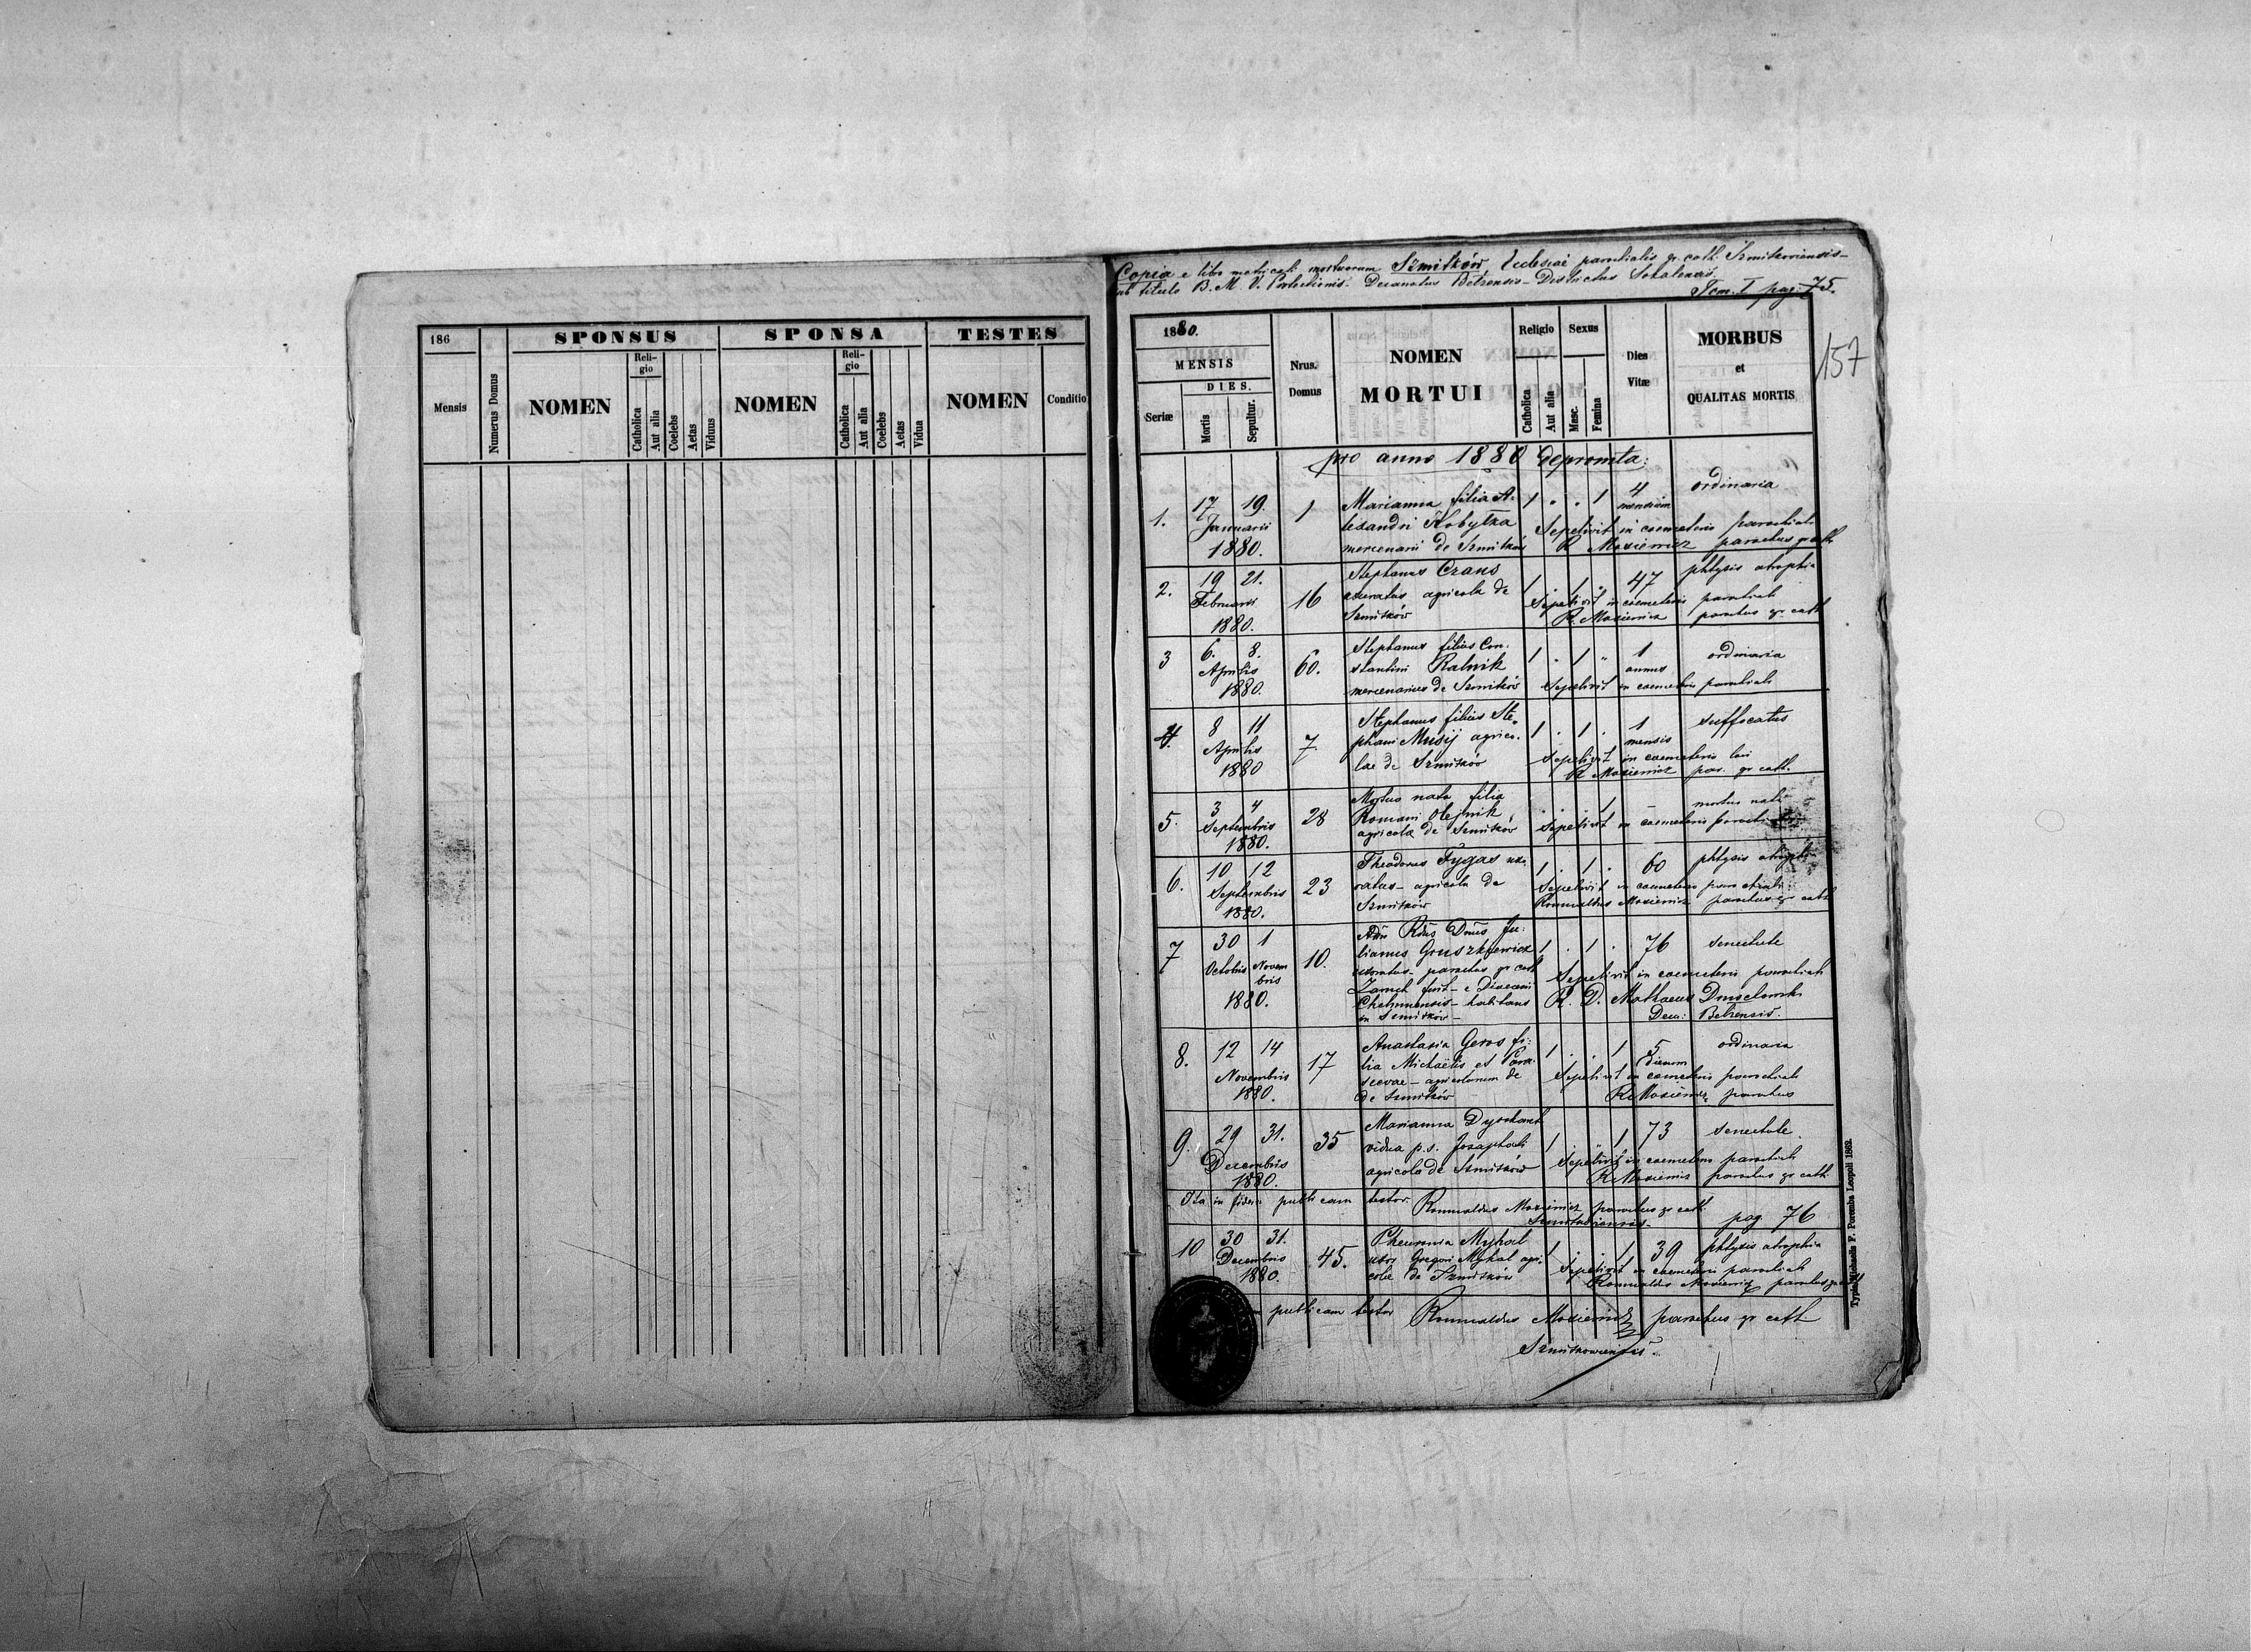 186
SPONSUS
SPONSA
TESTES
Mensis
Numerus Domus
NOMEN
Religio
Catholica
Aut alia
Coelebs
Aetas
Viduus
NOMEN
Religio
Catholica
Aut alia
Coelebs
Aetas
Vidua
NOMEN
Conditio
Copia e libro metricali mortuorum Szmitków, Ecclesiae parochialis gr. cath. Szmitkoviensis
sub titulo B. M. V. Protectionis. Decanatus Belzensis - Districtus Sokalensis.
Tom. I pag. 75.
157
1880.
MENSIS
DIES.
Seriæ
Mortis
Sepultur.
Nrus.
Domus
NOMEN
MORTUI
Religio
Catholica
Aut alia
Sexus
Masc.
Femina
Dies
Vitæ
MORBUS
et
QUALITAS MORTIS
pro anno 1880 depromta:
1. 17 19. 1 Marianna filia A- 1 . . 1 4 ordinaria
Januarii lexandri Kobyłka mensium
Sepelivit in coemeterio parochiali
1880. mercenarii de Szmitków R. parochus gr cath
2. 19 21. 16 Stephanus Crans 1 . 1 . 47 phtysis atrophia
Februarii uxoratus agricola de Sepelivit in coemeterio parochiali
1880. Szmitków R. parochus gr. cath
3 6. 8. 60. Stephanus filius Con- 1 . 1 . 1 ordinaria
Aprilis stantini Ratnik annus
1880. mercenarius de Szmitków Sepelivit in coemeterio parochiali
4. 8 11 7 Stephanus filius Ste- 1 . 1 . 1 suffocatus
Aprilis phani Musij agrico- mensis
1880 lae de Szmitków Sepelivit in coemeterio
R. par. gr cath.
5. 3 4 28 Mortus nata filia . . . 1 - mortus nati
Septembris Romani Olejnik
1880. agricola de Szmitków Sepelivit in coemeterio parochiali
6. 10 12 23 Theodorus Fygas uxo- 1 . 1 . 60 phtysis atrophia
Septembris ratus - agricola de Sepelivit in coemeterio parochiali
1880. Szmitków Romualdus parochus gr cath
7 30 1 10. Adm Rdus Dnus Ju- 1 . 1 . 76 senectute
Octobris Novembris lianus Gruszkiewicz
uxoratus - parochus gr cath Sepelivit in coemeterio parochiali
1880. fuit - e Dioecesi
Chelmensis - habitans R. D. Mathaeus
in Szmitków - Dec: Belzensis.
8. 12 14 17 Anastasia Geros fi- 1 . . 1 5 ordinaria
Novembris lia Michaëlis et Para- dierum
1880. scevae - agricolarum de Sepelivit in coemeterio parochiali
de Szmitków R. parochus
9. 29 31. 35 Marianna 1 . . 1 73 senectute
Decembris vidua p.s. Josaphati
1880. agricola de Szmitków Sepelivit in coemeterio parochiali
R. parochus gr cath.
Ita in fidem publicam testor. Romualdus parochus gr cath
pag. 76
10 30 31. 45. Myhal 1 . . 1 39 phtysis atrophia
Decembris uxor Gregori Myhal agri- Sepelivit in coemeterio parochiali
1880. colae de Szmitków Romualdus parochus gr cath
publicam testor Romualdus parochus gr cath
Szmitkowiensis.
Typis Michaelis F. Poremba Leopoli 1862.